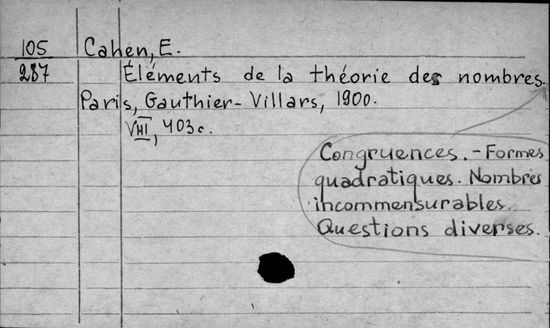 105 Cahen, E.
287 Éléments de la théorie des nombres.
Paris, Gauthier-Villars, 1900.
VIII, 403 c.
Congruences. - Formes
quadratiques. Nombres
incommensurables.
Questions diverses.